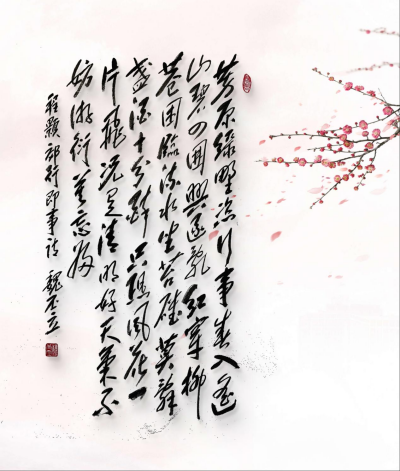 芳原绿野恣行事春入遥
山碧四围興逐乱红穿柳
巷困临流水坐苔矶莫辞
盏酒十分劝只恐风花一
片飞况是清明好天气不
妨游衍莫忘归
程颢郊行即事诗 魏玉立